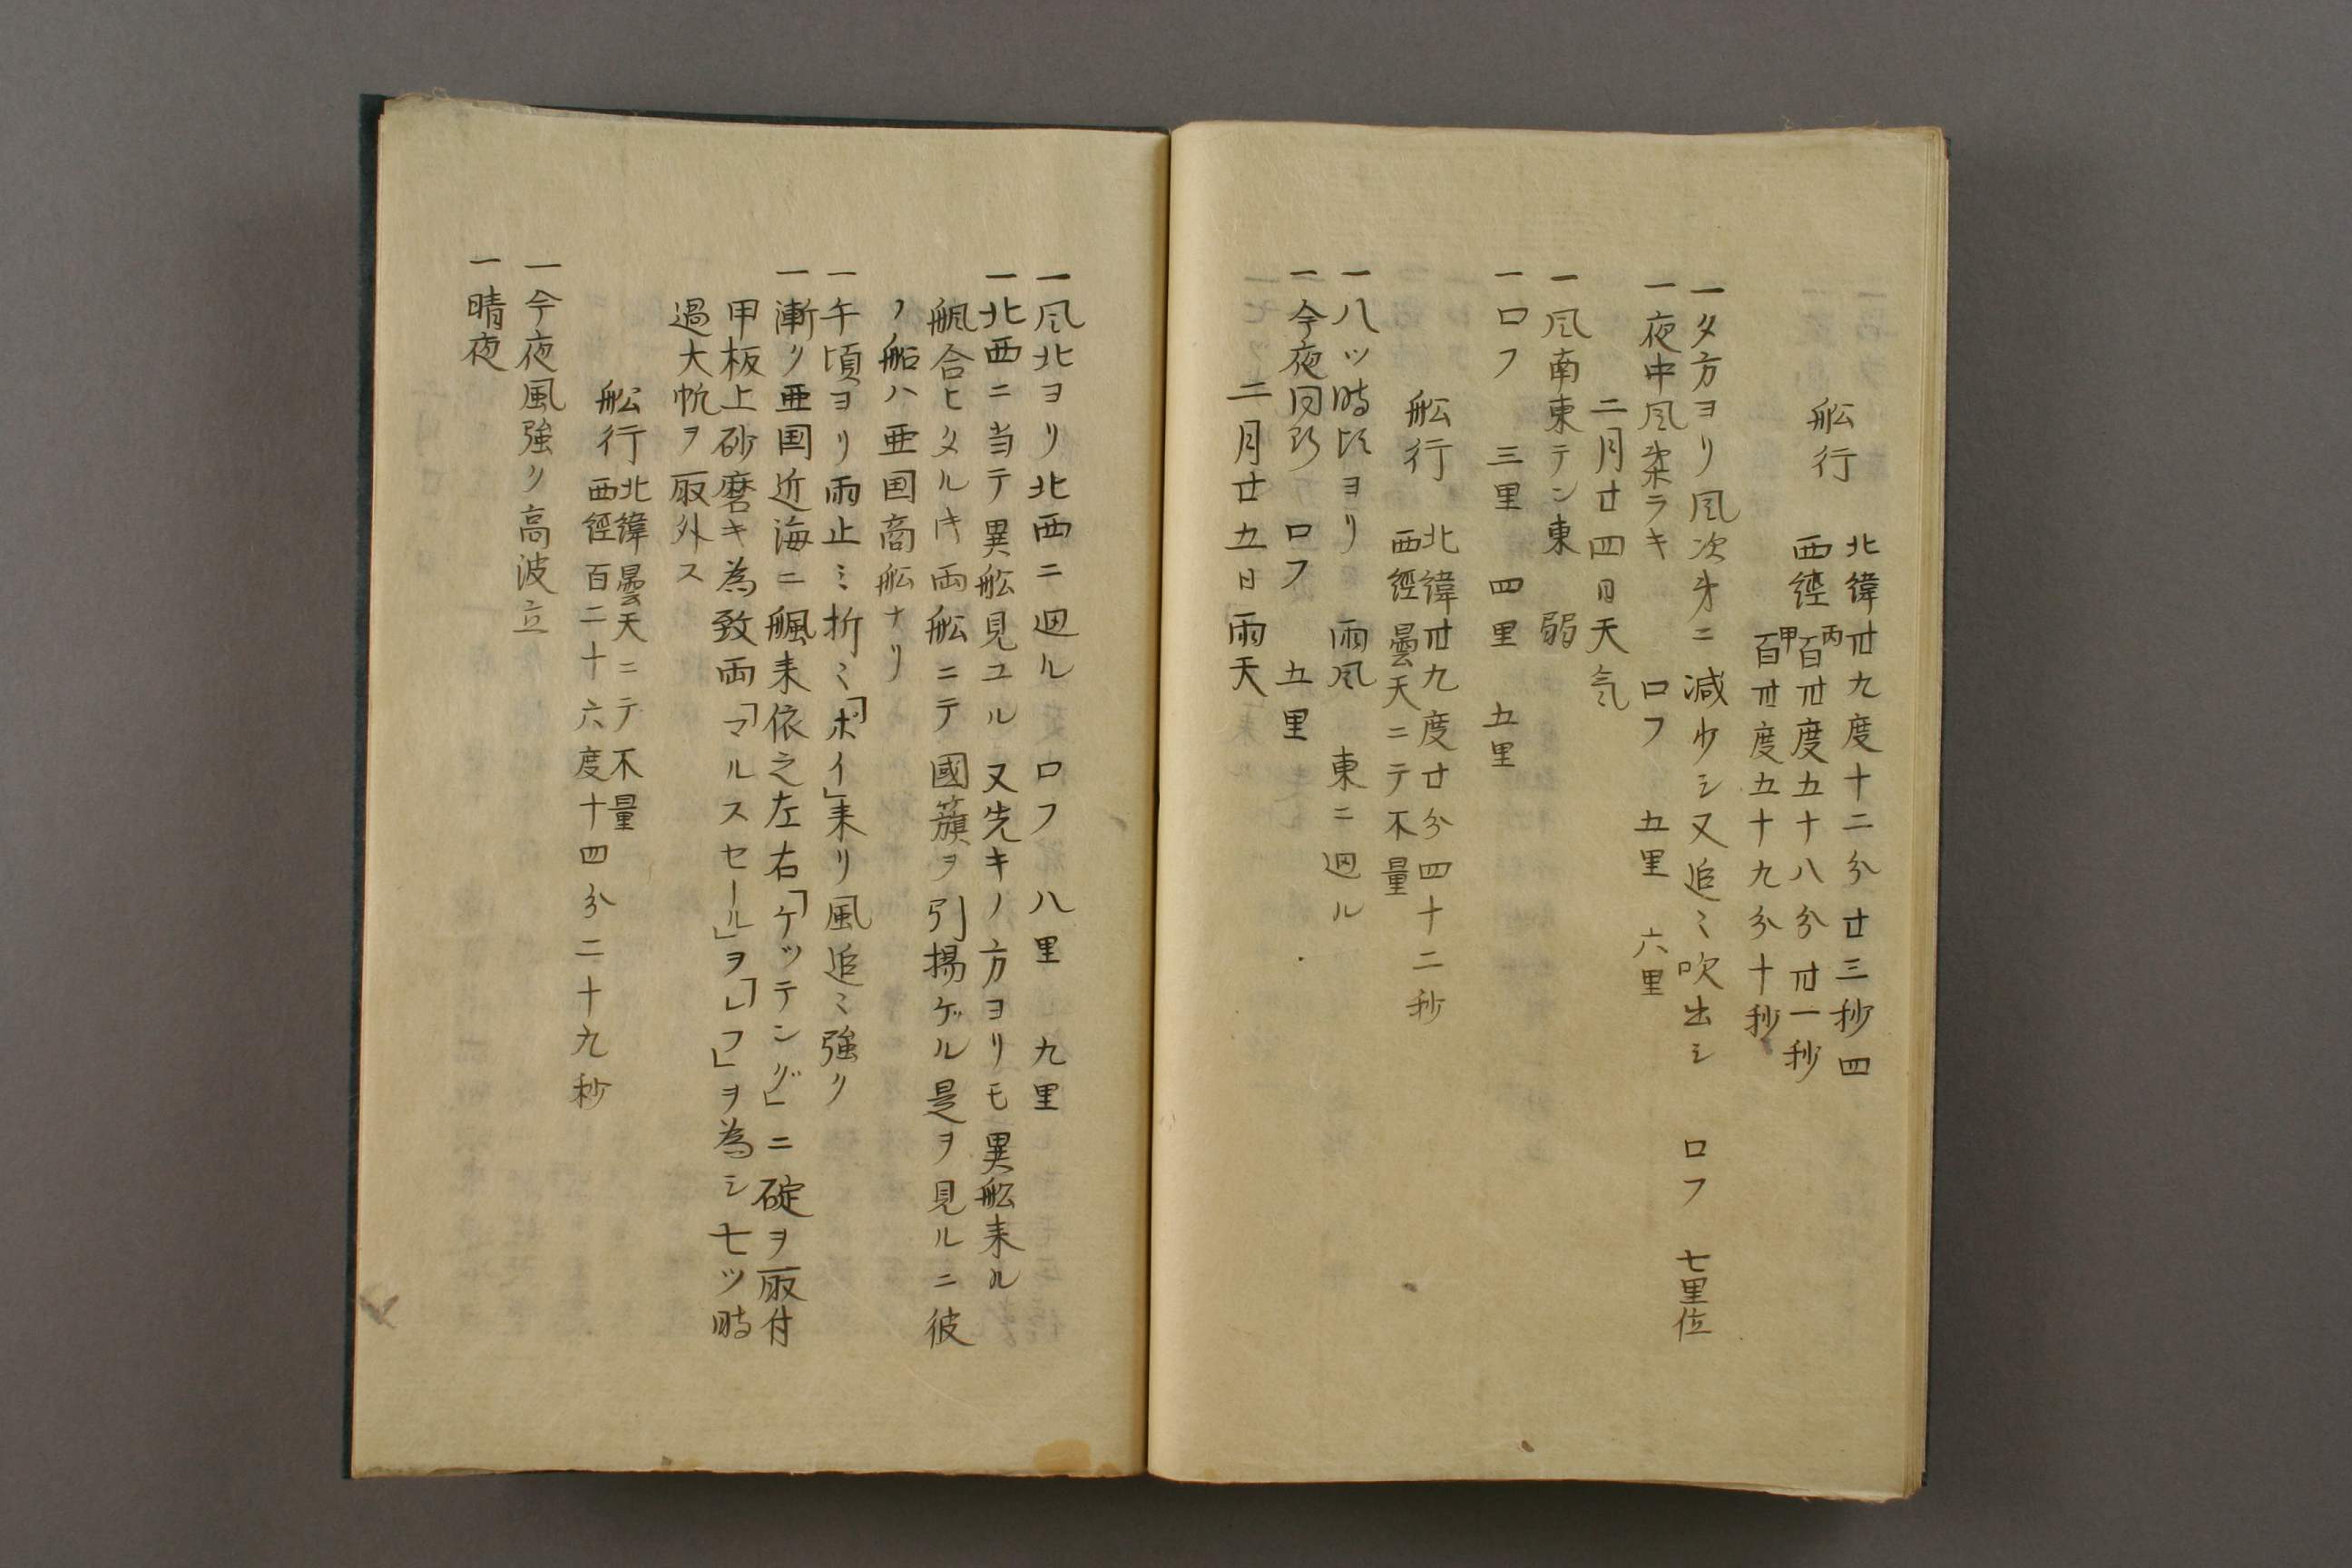 舩行 北緯卅九度十二分廿三秒四
西經 丙百卅度五十八分卅一秒
甲百卅度五十九分十秒
一夕方ヨリ風次第ニ減少シ又追〻吹出シ ロフ 七里位
一夜中風柔ラキ ロフ 五里 六里
二月廿四日天気
一風南東テン東 弱
一ロフ 三里 四里 五里
舩行 北緯卅九度廿分四十二秒
西經曇天ニテ不量
一八ッ時頃ヨリ雨風 東ニ廻ル
一今夜同断 ロフ 五里
二月廿五日雨天
一風北ヨリ北西ニ廻ル ロフ 八里 九里
一北西ニ当テ異舩見ユル又先キノ方ヨリモ異舩来ル
颿合ヒタルキ両舩ニテ國籏ヲ引揚ケル是ヲ見ルニ彼
ノ船ハ亜国商舩ナリ
一午頃ヨリ雨止ミ折ミ「ポイ」来リ風追〻強ク
一漸ク亜国近海ニ颿来依之左右「ケッテング」ニ碇ヲ取付
甲板上砂磨キ為致両「マルスセール」ヲ「レフ」ヲ為シ七ツ時
過大帆ヲ取外ス
舩行 北緯曇天ニテ不量
西經百二十六度十四分二十九秒
一今夜風強ク高波立
一晴夜